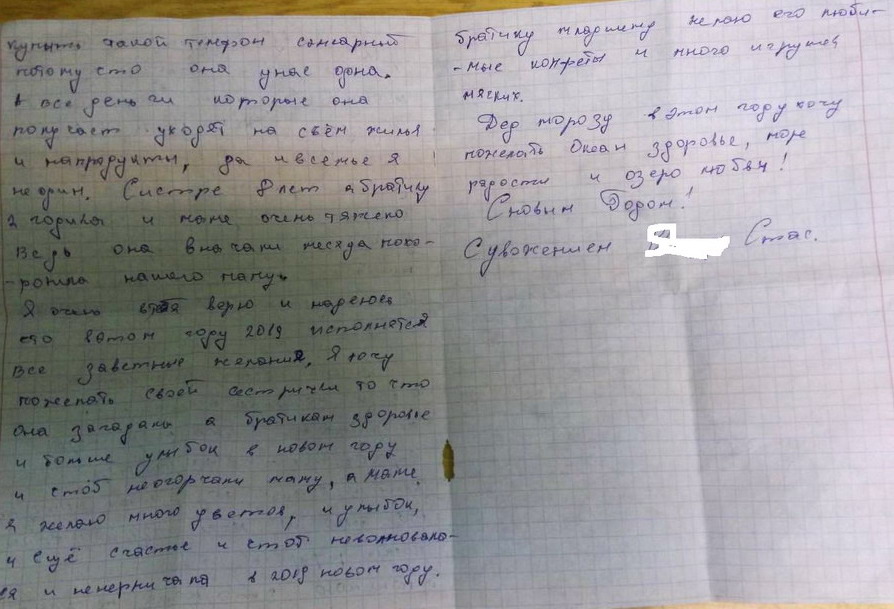 купить такой телефон сенсарный
потому сто она унас одна.
А все деньги которые она
получает уходят на съём жилья
и напродукты, да ивсемье я
не один. Систре 8 лет абратику
2 годика и маме очень тяжело
Ведь она вначали месяца похо-
-ронила нашего папу.
Я очень верю и надеюсь
сто вэтом году 2019 исполнятся
все заветные желания, я хочу
пожелать своей сестрички то что
она загадала а братикам здоровье
и больше улыбок в новом году
и стоб неогорчали маму, а маме
я желаю много цветов, и улыбок,
и ещё счастье и стоб неволновала-
ся и ненервничала в 2019 новом году.
братику младшему желаю его люби-
-мые конфеты и много игрушек
мяских.
Дед морозу вэтом году хочу
пожелать Океан здоровье, море
радости и озеро любви!
Сновым Годом!
Суважением Стас.